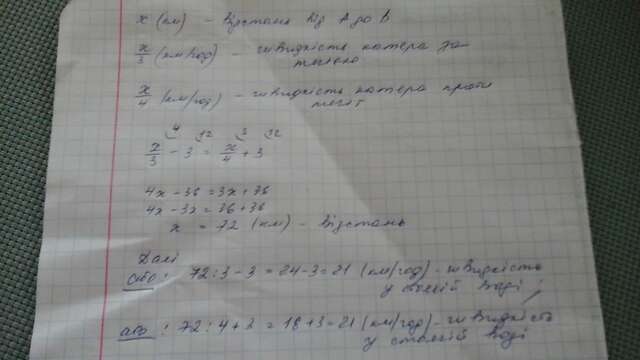 x (км) – відстань від A до B
x/3 (км/год) – швидкість катера за
течією
x/4 (км/год) – швидкість катера проти
течії
4 12 3 12
x/3 – 3 = x/4 + 3
4x – 36 = 3x + 36
4x – 3x = 36 + 36
x = 72 (км) – відстань
Далі
або: 72 : 3 – 3 = 24 – 3 = 21 (км/год) – швидкість
у стоячій воді;
або: 72 : 4 + 3 = 18 + 3 = 21 (км/год) – швидкість
у стоячій воді